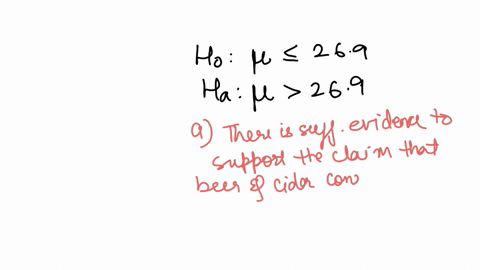 H₀: μ ≤ 26.9
Hₐ: μ > 26.9
a) There is suff. evidence to
support the claim that
beer & cider con